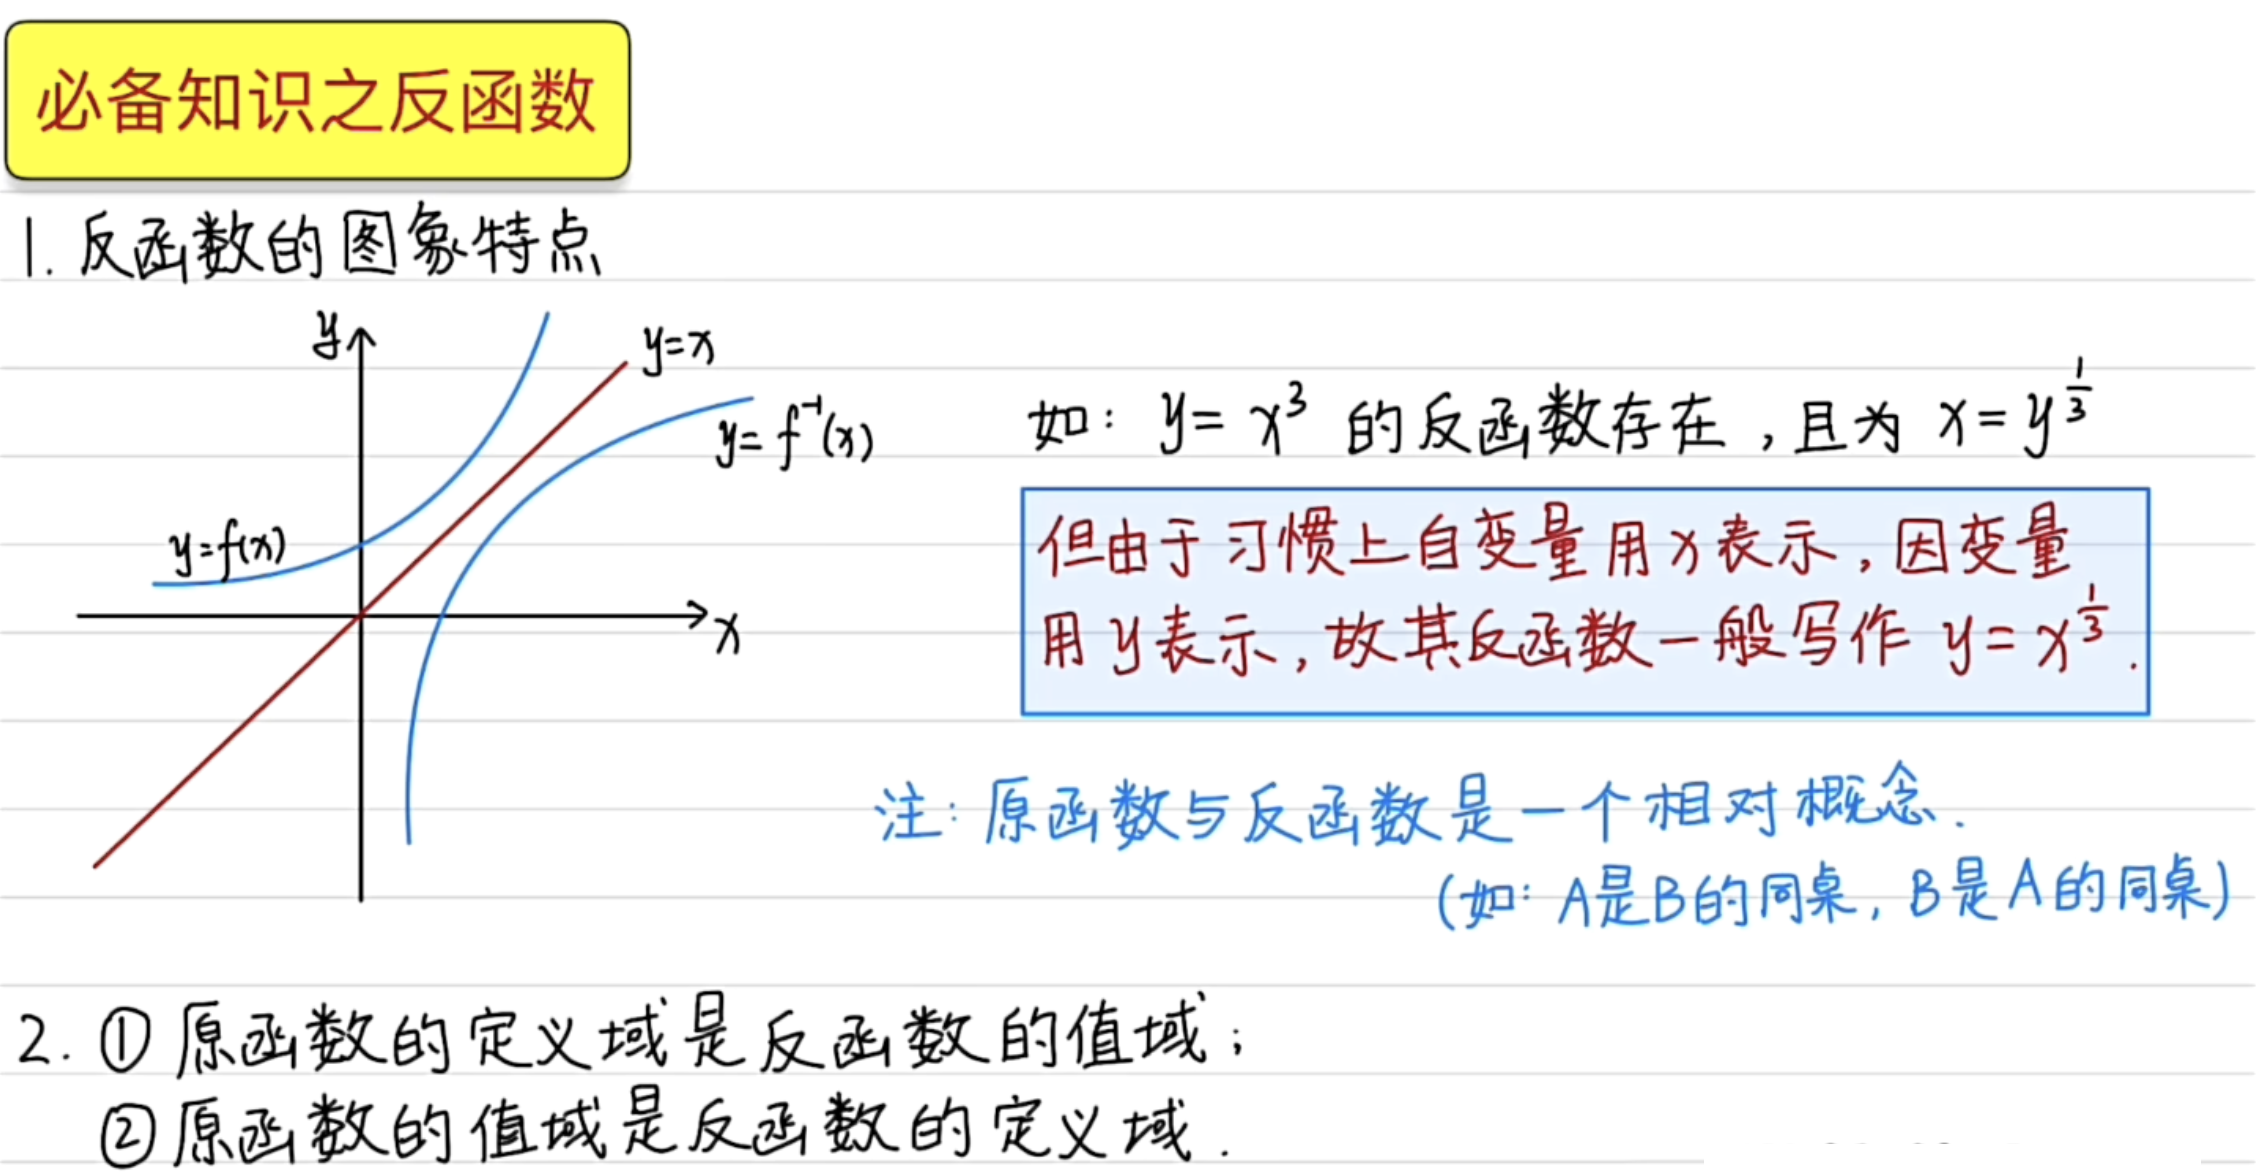 必备知识之反函数
1. 反函数的图象特点
y
y=x
y=f⁻¹(x)
y=f(x)
x
如: y= x³ 的反函数存在,且为 x=y^{1/3}
但由于习惯上自变量用x表示,因变量
用y表示,故其反函数一般写作 y=x^{1/3}.
注:原函数与反函数是一个相对概念.
(如: A是B的同桌, B是A的同桌)
2. ① 原函数的定义域是反函数的值域;
② 原函数的值域是反函数的定义域.